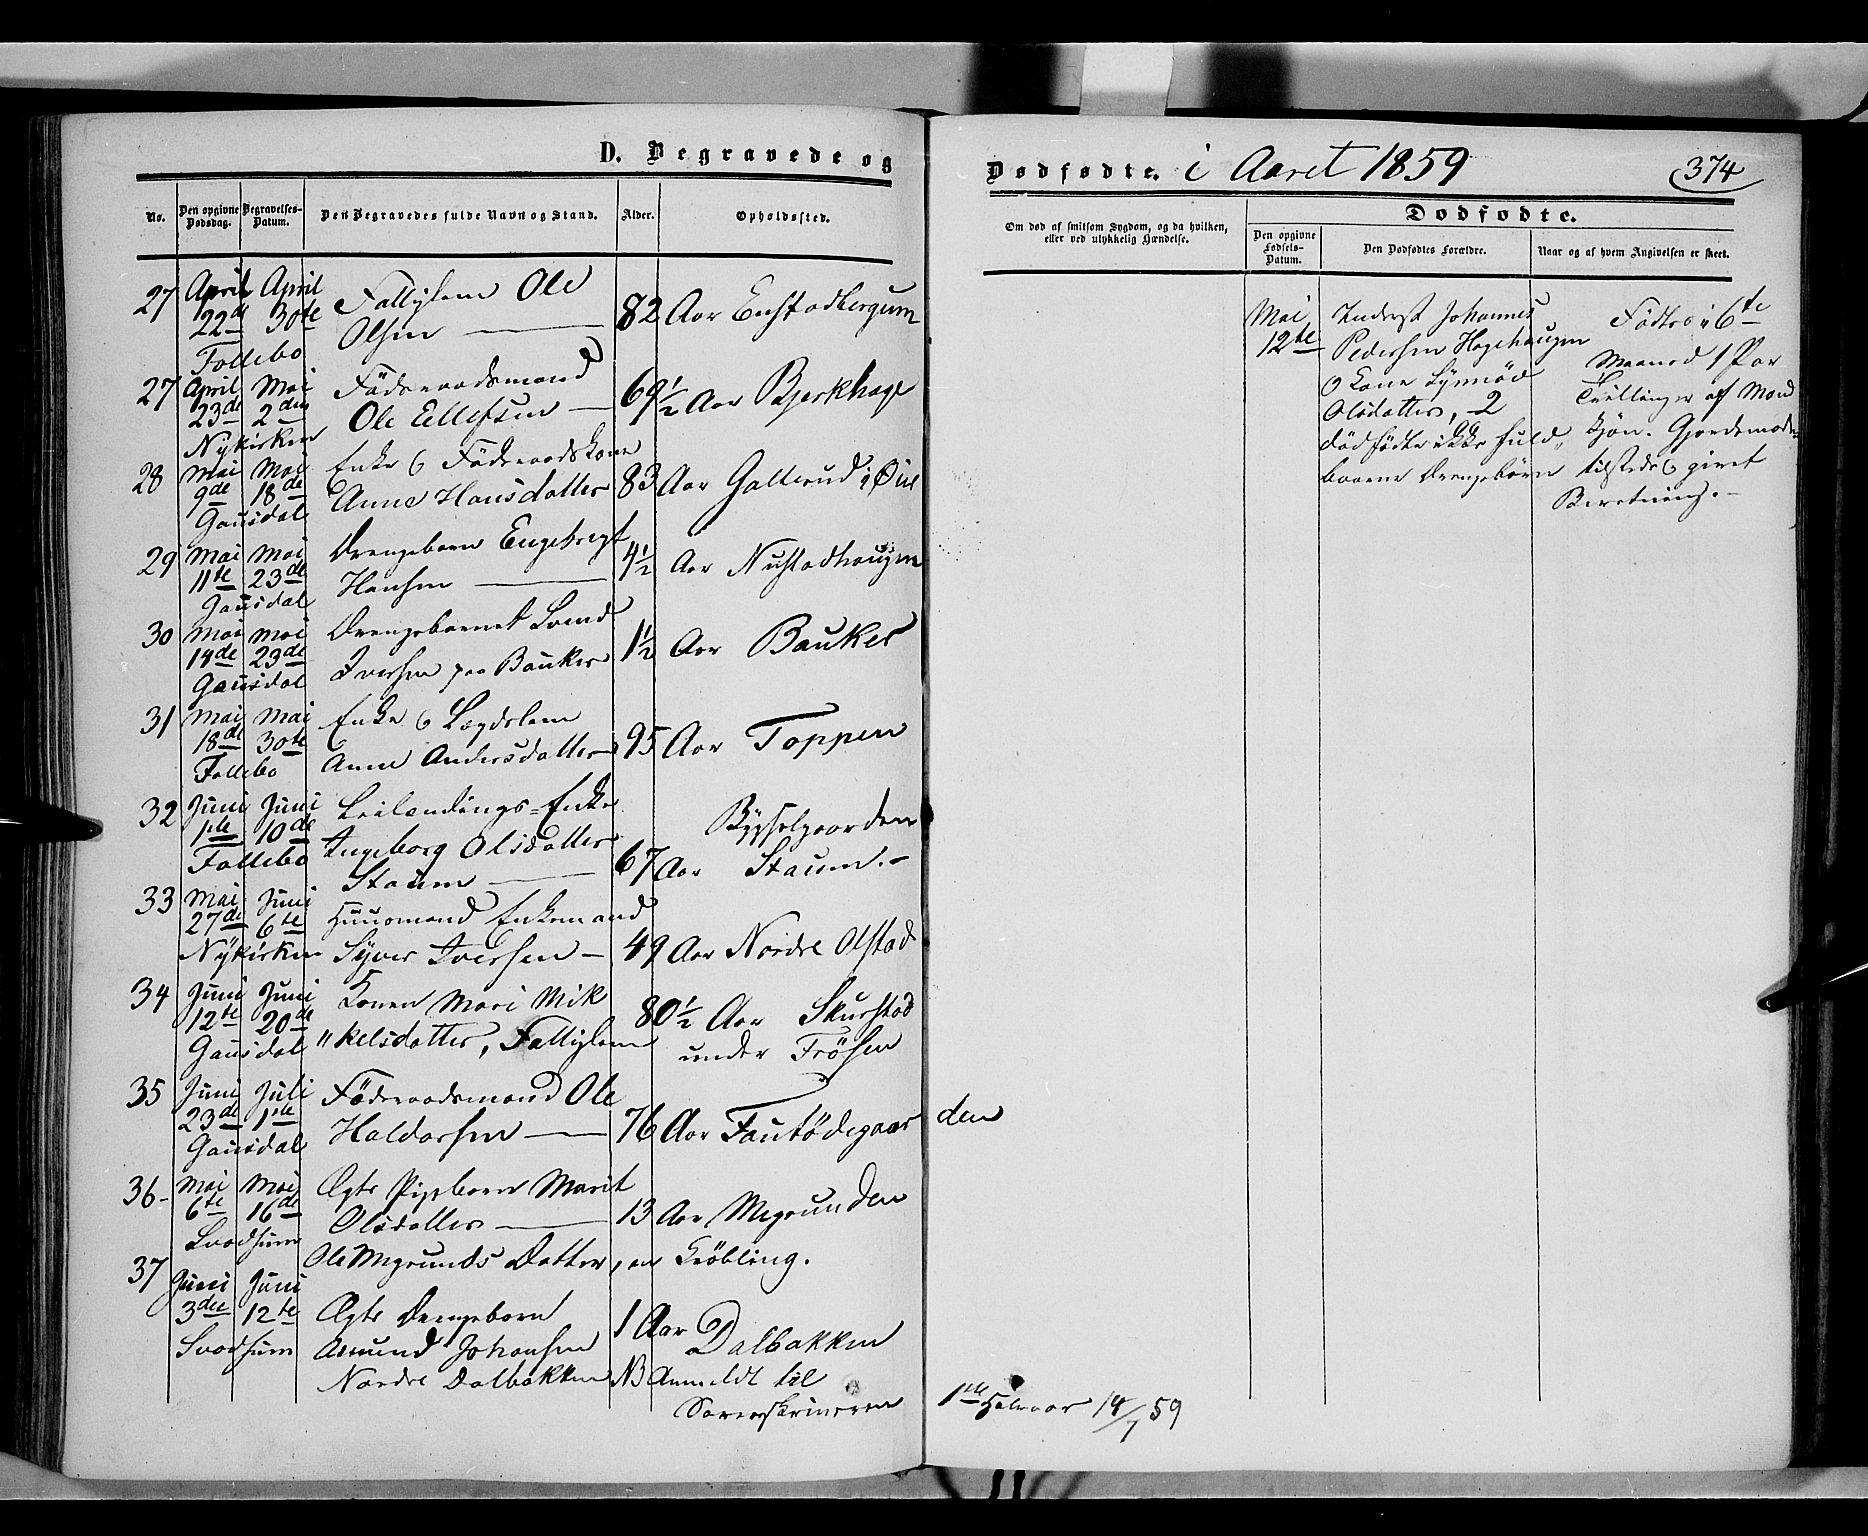 D. Begravede og
No.
Den opgivne Dødsdag.
Begravelses-Datum.
Den Begravedes fulde Navn og Stand.
Alder.
Opholdssted.
27 April April Fattiglem Ole
22de 30te Olsen 82 Aar Enstadbergum
Follebo
27 April Mai Föderaadsmand
23de 2den Ole Ellefsen 69½ Aar Bjerkhage
Nykirken
28 Mai Mai Enke o Föderaadskone
9de 18de Anne Hansdatter 83 Aar Galterud i Øier
Gausdal
29 Mai Mai Drengebarn Engebregt
11te 23de Hansen 4½ Aar Nustadhaugen
Gausdal
30 Mai Mai Drengebarnet Svend
14de 23de Iversen paa Bauker 1½ Aar Bauker
Gausdal
31 Mai Mai Enke o Lægdslem
18de 30te Anne Andersdatter 95 Aar Toppen
Follebo
32 Juni Juni Leilendings-Enke
1ste 10de Ingeborg Olsdatter Bygselgaarden
Follebo Staum 67 Aar Staum.-
33 Mai Juni Huusmand Enkemand
27de 6te
Nykirken Syver Iversen - 49 Aar Nordre Olstad
34 Juni Juni Konen Mari Mik
12te 20de 80½ Aar Skurstad
Gausdal "kelsdatter, Fattiglem under Frösen
35 Juni Juli Föderaadsmand Ole
23de 1ste Haldorsen 76 Aar Fautödegaar den
Gausdal
36- Mai Mai Ægte Pigebarn Marit
6te 16de Olsdatter 13 Aar Megrunden
Svadsum
Ole Megrunds Datter, en Kröbling.
37 Juni Juni
3die 12te Ægte Drengebarn 1 Aar
Svadsum Amund Johansen Dalbakken
Nordre Dalbakken NB Anmeldt til
Sorenskriveren 1ste Halvaar 14/7 59
Dødfødte. i Aaret 1859
374
Om død af smitsom Sygdom, og da hvilken,
eller ved ulykkelig Hændelse.
Dødfødte.
Den opgivne Fødsels-Datum.
Den Dødfødtes Forældre.
Naar og af hvem Angivelsen er skeet.
Mai
12te
Inderst Johannes
Pedersen Hagehaugen
o Kone Synnöv
Olsdatter, 2
dödfödte ikke fuld
baarne Drengebörn
Födte i 6te
Maaned 1 Par
Tvillinger af Mand
kjön. Gjordemode
tilstede o givet
Beretning. -